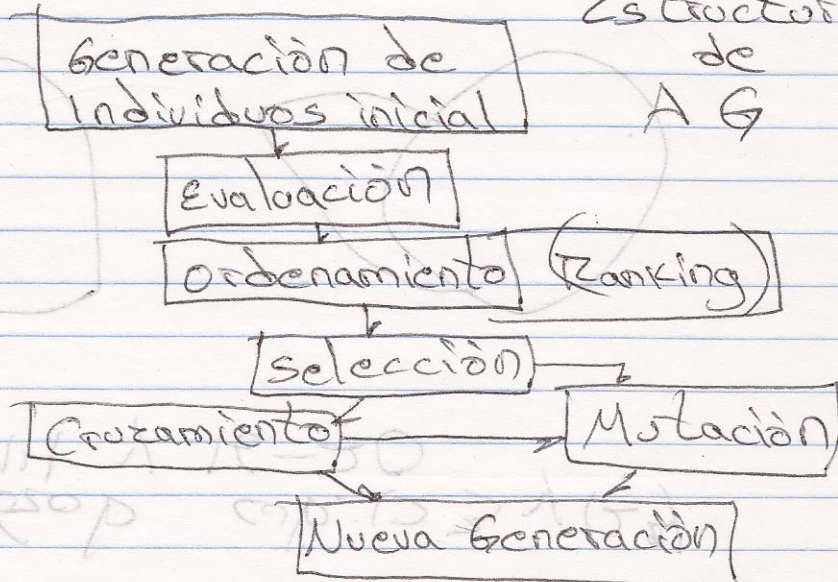 de
A G
Generaciòn de
Individuos inicial
Evaluaciòn
Ordenamiento (Ranking)
Selecciòn
Cruzamiento
Mutaciòn
Nueva Generaciòn